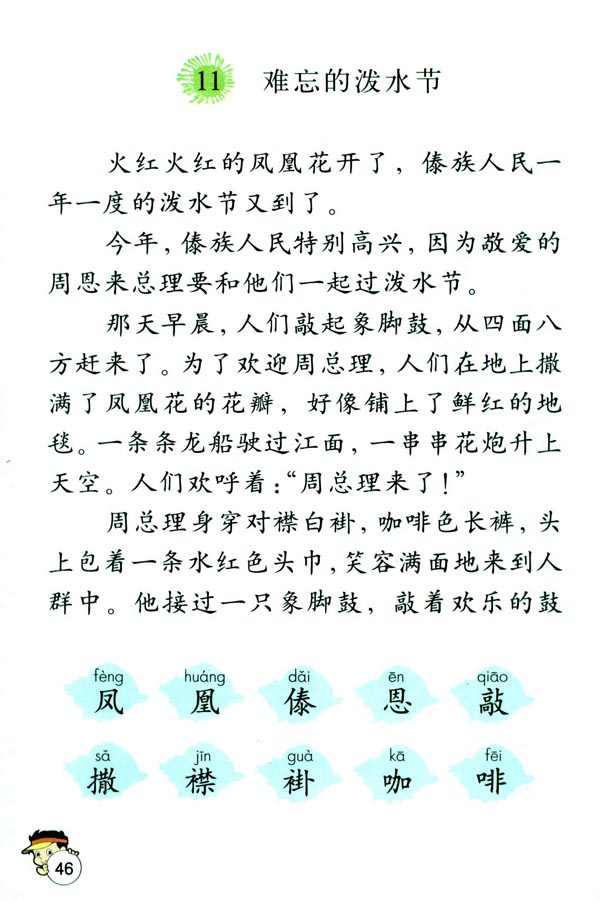 11 难忘的泼水节
火红火红的凤凰花开了，傣族人民一
年一度的泼水节又到了。
今年，傣族人民特别高兴，因为敬爱的
周恩来总理要和他们一起过泼水节。
那天早晨，人们敲起象脚鼓，从四面八
方赶来了。为了欢迎周总理，人们在地上撒
满了凤凰花的花瓣，好像铺上了鲜红的地
毯。一条条龙船驶过江面，一串串花炮升上
天空。人们欢呼着：“周总理来了！”
周总理身穿对襟白褂，咖啡色长裤，头
上包着一条水红色头巾，笑容满面地来到人
群中。他接过一只象脚鼓，敲着欢乐的鼓
fèng huáng dǎi ēn qiāo
凤 凰 傣 恩 敲
sǎ jīn guà kā fēi
撒 襟 褂 咖 啡
46